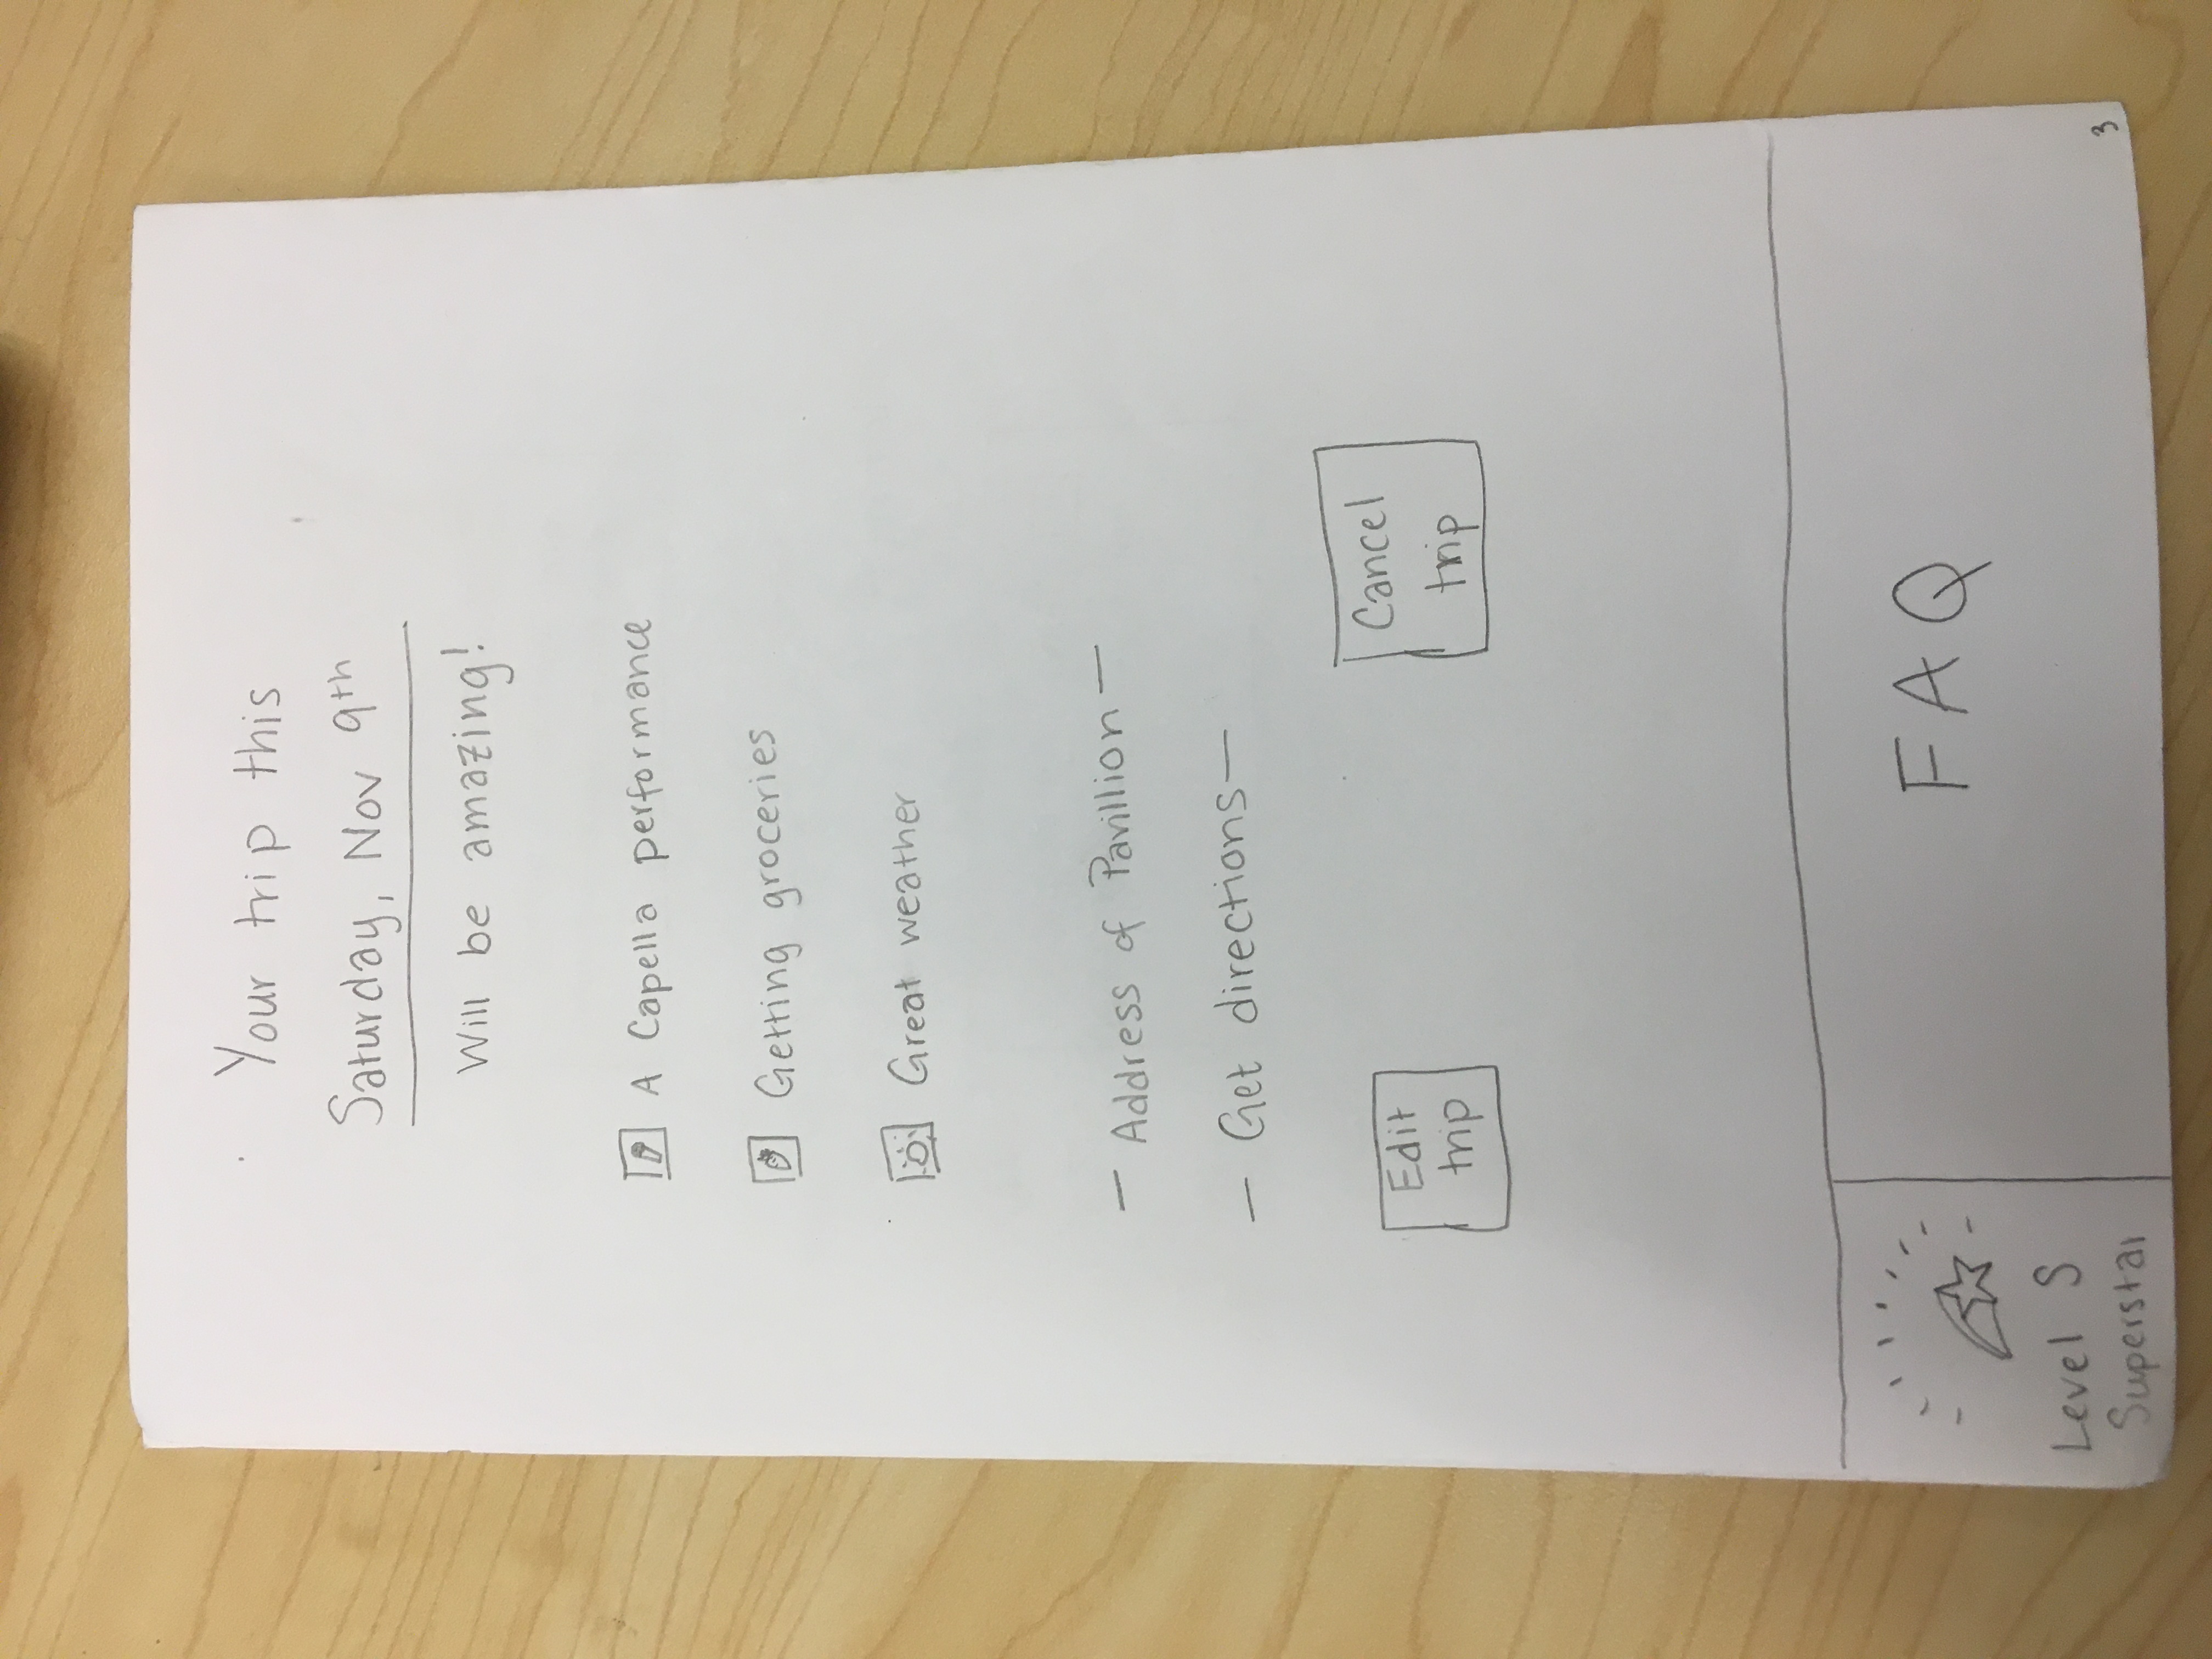 Your trip this
Saturday, Nov 9th
Will be amazing!
A Capella performance
Getting groceries
Great weather
— Address of Pavillion —
— Get directions —
Edit
trip
Cancel
trip
FAQ
Level S
Superstar
3